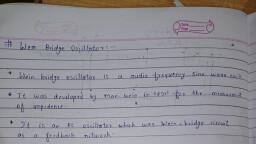 # Wein Bridge Oscillator :-
* Wein bridge oscillator is a audio frequency sine wave
* It was developed by Max Wein in for the measurement
of impedence.
* It is an RC oscillator which uses Wein-bridge circuit
as a feedback network.